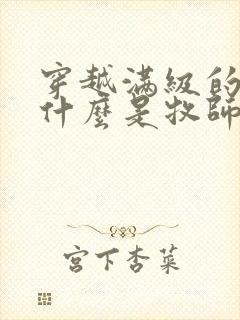 穿越滿級的
什麼是牧師
宮下杏菜